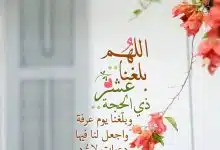 اللهم
بلغنا
عشر
ذي الحجة
وبلغنا يوم عرفة
واجعل لنا فيها